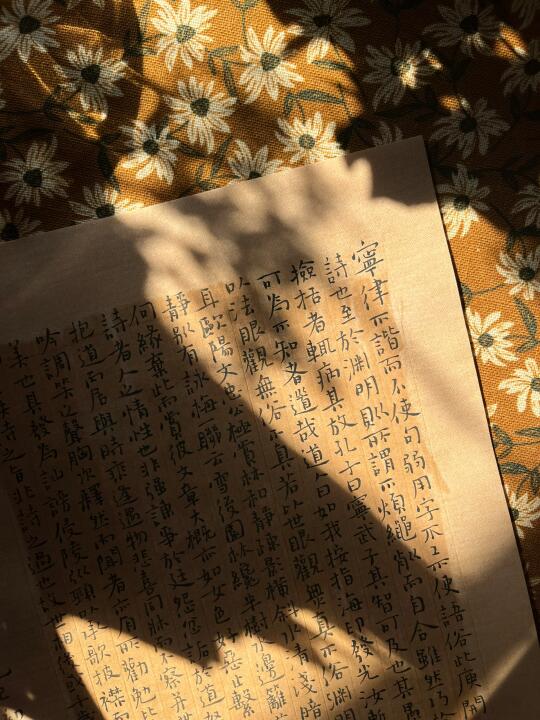 寧律不諧而不使句弱用字不工不使語俗此庾開
詩也至於淵明則所謂不煩繩削而自合雖然巧於
撿括者輒病其放孔子曰寧武子其智可及也其愚
可為不知者道哉道人曰如我按指海印發光汝暫
以法眼觀無俗不真若以世眼觀無真不俗淵明
耳歐陽文忠公極賞林和靜疎影橫斜水清淺暗
靜別有詠梅聯云雪後園林纔半樹水邊籬
何緣棄此而賞彼文章大概亦如女色好惡止繫
詩者人之情性也非強諫爭於廷怨忿詬於道怒
抱道而居與時乖逢遇物悲喜同牀而不察並世
吟調笑之聲胸次釋然而聞者亦有所勸勉比
美也其發為訕謗侵陵引頸以承戈披襟而
詩之旨非詩之過也故世相後或千歲